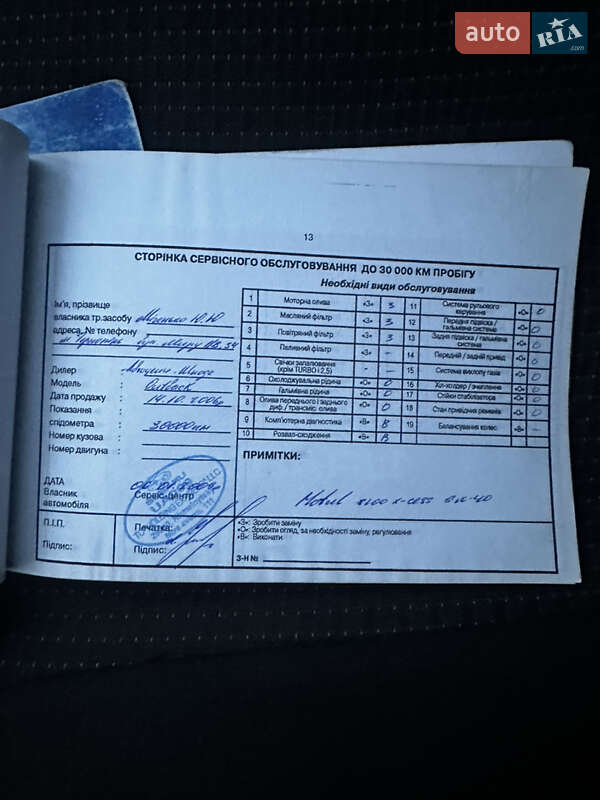 auto RIA.com
13
СТОРІНКА СЕРВІСНОГО ОБСЛУГОВУВАННЯ ДО 30 000 КМ ПРОБІГУ
Необхідні види обслуговування
Ім'я, прізвище
власника тр.засобу
адреса, № телефону
Дилер :
Модель : Outback
Дата продажу : 14.10.2006р
Показання :
спідометра 30000км
Номер кузова :
Номер двигуна :
ДАТА
Власник Сервіс-центр
автомобіля
П.І.П. Печатка:
Підпис: Підпис:
1 Моторна олива «З» З
2 Масляний фільтр «З» З
3 Повітряний фільтр «З» З
4 Паливний фільтр «З» –
5 Свічки запалювання (крім TURBO і 2,5) – –
6 Охолоджувальна рідина «О» О
7 Гальмівна рідина «О» О
8 Олива переднього і заднього диф / трансміс. олива «О» О
9 Комп'ютерна діагностика «В» В
10 Розвал-сходження «В» В
11 Система рульового керування «О» О
12 Передня підвіска / гальмівна система «О» О
13 Задня підвіска / гальмівна система «О» О
14 Передній / задній привід «О» О
15 Система вихлопу газів «О» О
16 Кл-холдер / зчеплення «О» О
17 Стійки стабілізатора «О» О
18 Стан привідних ременів «О» О
19 Балансування колес «В» –
ПРИМІТКИ:
Motul 8100 X-cess 5w-40
«З»: Зробити заміну
«О»: Зробити огляд, за необхідності заміну, регулювання
«В»: Виконати
З-Н №